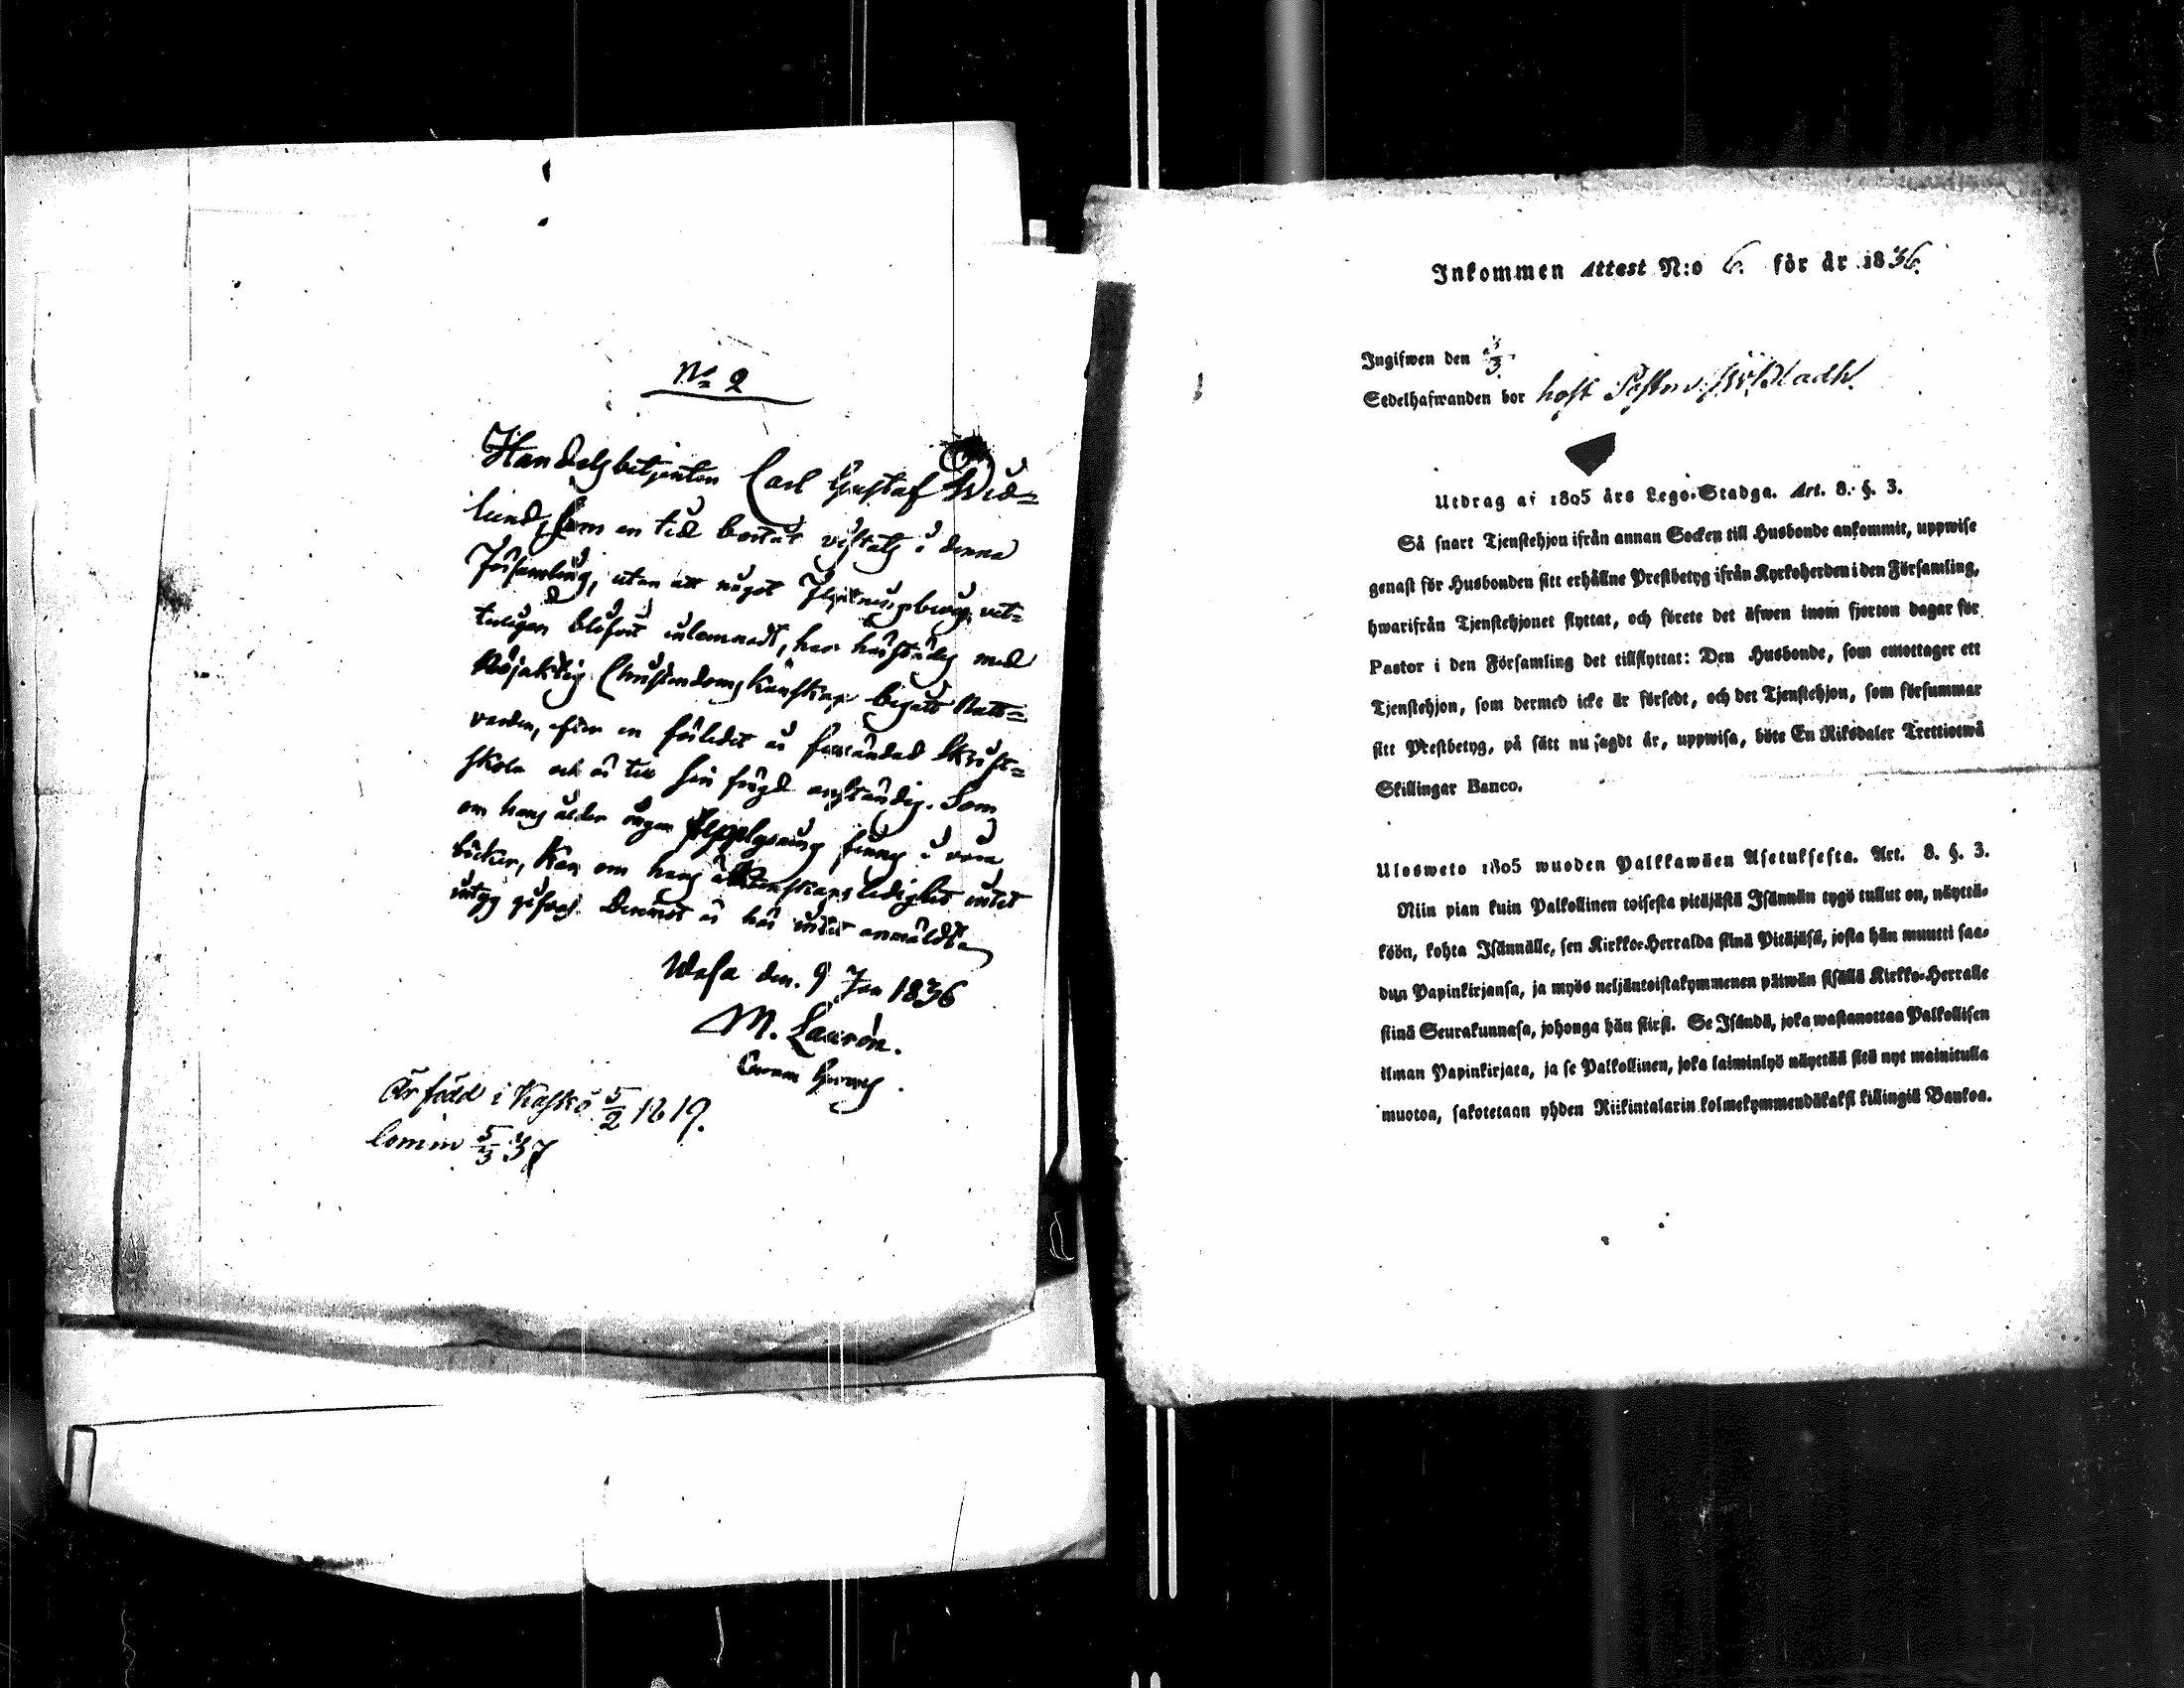 No 2
Handelsbetjenten Carl Gustaf Wid=
lund, som en tid bortåt vistats i denna
Församling, utan att något Flyttningsbetyg vet=
terligen blifvit inlemnadt, har härstädes med
Nöjaktig Christendoms kunskap begått Natt=
varden, efter en förledet år Skrift=
skola och är till sin frägd anständig. Som
om hans ålder ingen upplysning finnes i våra
böcker, kan om hans äktenskaps ledighet intet
intyg gifvas. Derimot är här intet anmäldt.
Wasa den 9 Jan 1836
M. Laurén.
Är född i Kaskö 5/2 1819.
5/3 37
Inkommen Attest N:o 6. för år 1836.
Ingifwen den 5/3
Sedelhafwanden bor hos
Utdrag af 1805 års Lego-Stadga. Art. 8. §. 3.
Så snart Tjenstehjon ifrån annan Socken till Husbonde ankommit, uppwise
genast för Husbonden sitt erhållne Prestbetyg ifrån Kyrkoherden i den Församling,
hwarifrån Tjenstehjonet flyttat, och förete det äfwen inom fjorton dagar för
Pastor i den Församling det tillflyttat: Den Husbonde, som emottager ett
Tjenstehjon, som dermed icke är försedt, och det Tjenstehjon, som försummar
sitt Prestbetyg, på sätt nu sagdt är, uppwisa, böte En Riksdaler Trettiotwå
Skillingar Banco.
Ulosweto 1805 wuoden Palkkawäen Asetuksesta. Art. 8. §. 3.
Niin pian kuin Palkollinen toisesta pitäjästä Isännän tygö tullut on, näyttä-
köön, kohta Isännälle, sen Kirkko-Herralda siinä Pitäjäsä, josta hän muutti saa-
dun Papinkirjansa, ja myös neljäntoistakymmenen päiwän sisällä Kirkko-Herralle
siinä Seurakunnasa, johonga hän siirsi. Se Isändä, joka wastanottaa Palkollisen
ilman Papinkirjata, ja se Palkollinen, joka laiminlyö näyttää sitä nyt mainitulla
muotoa, sakotetaan yhden Riikintalarin kolmekymmendäkaksi killingiä Bankoa.